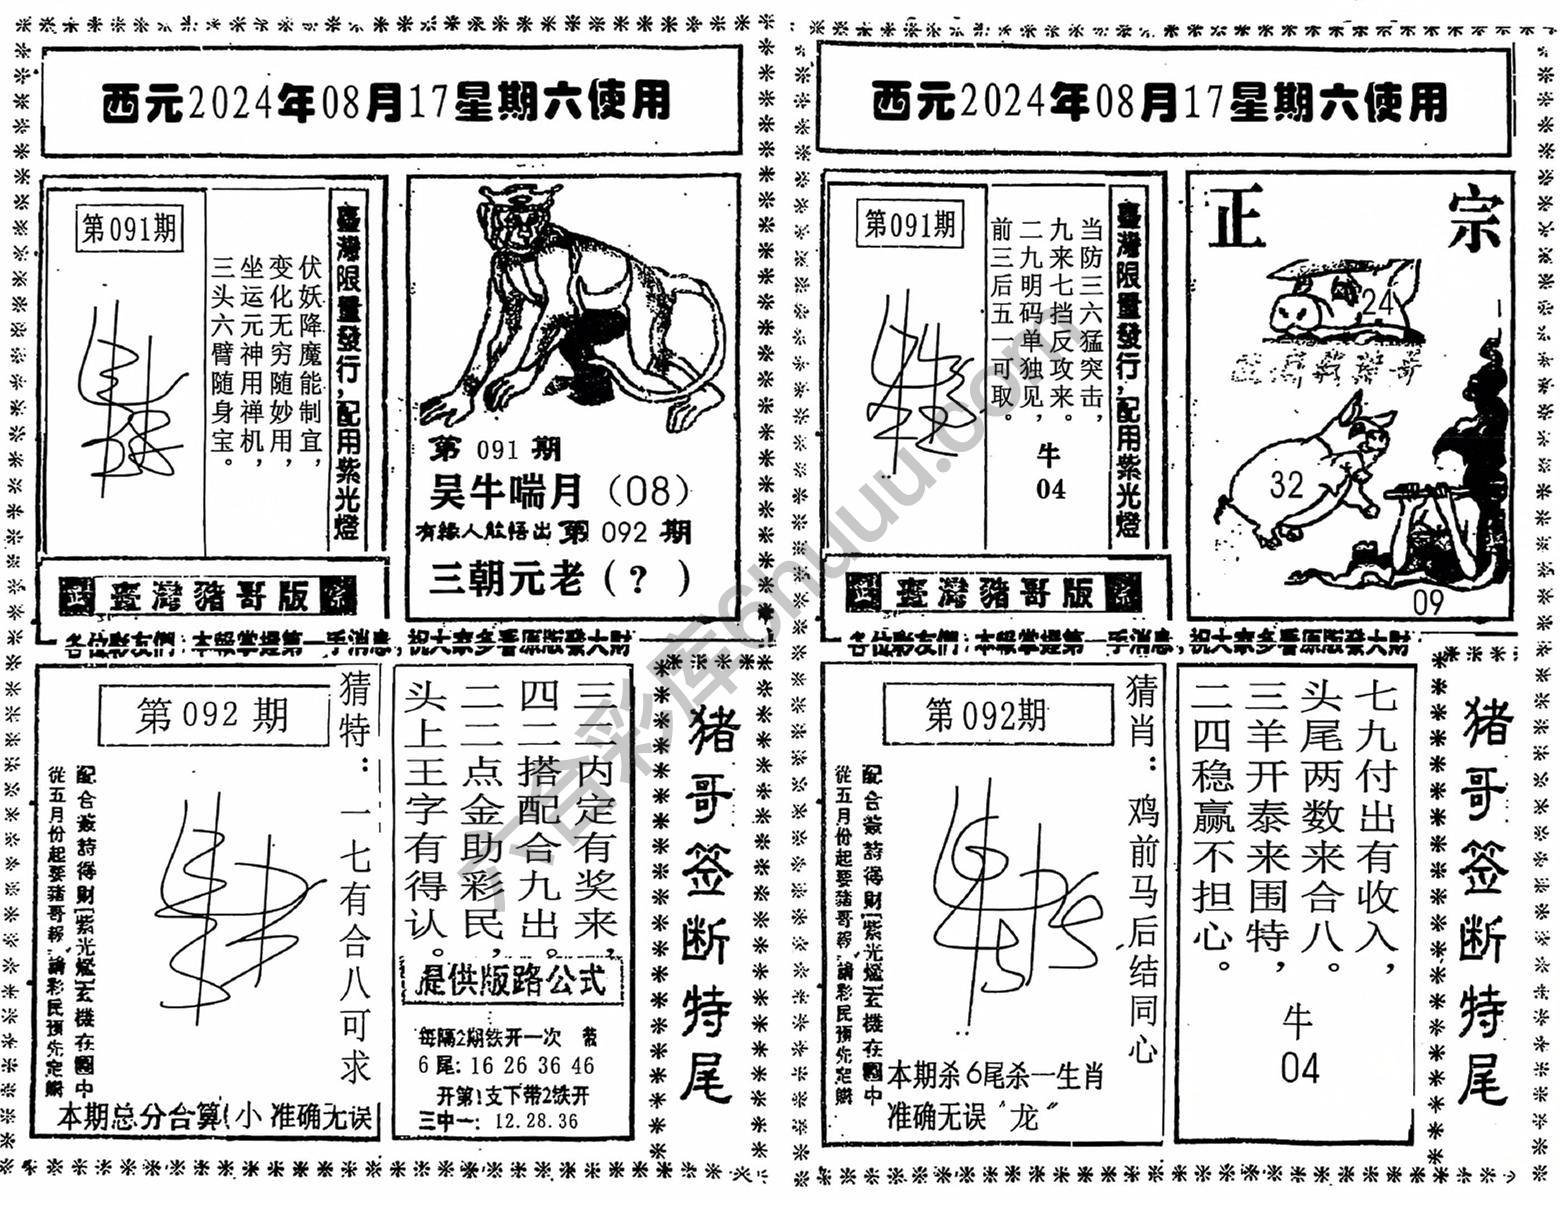 西元2024年08月17星期六使用
第091期
伏妖降魔能制宜，
变化无穷随妙用，
坐运元神用禅机，
三头六臂随身宝。
臺灣限量發行，配用紫光燈
正 臺灣豬哥版 宗
第 091 期
吴牛喘月（08）
有緣人能悟出 第 092 期
三朝元老（？）
各位彩友們：本報掌握第一手消息，祝大家多看原版發大財
第092期
猜特：一七有合八可求
配合簽詩得財紫光燈玄機在圖中
從五月份起要豬哥報，請彩民預先定購
本期总分合算(小 准确无误
三二内定有奖来，
四二搭配合九出。
二二点金助彩民，
头上王字有得认。
提供版路公式
每隔2期铁开一次
6尾：16 26 36 46
开第1支下带2铁开
三中一：12.28.36
猪哥签断特尾
西元2024年08月17星期六使用
第091期
当防三六猛突击，
九来七挡反攻来。
二九明码单独见，
前三后五一可取。
牛
04
臺灣限量發行，配用紫光燈
正 臺灣豬哥版 宗
正 宗
24
32
09
各位彩友們：本報掌握第一手消息，祝大家多看原版發大財
第092期
猜肖：鸡前马后结同心
配合簽詩得財紫光燈玄機在圖中
從五月份起要豬哥報，請彩民預先定購
本期杀6尾杀一生肖
准确无误“龙”
七九付出有收入，
头尾两数来合八。
三羊开泰来围特，
二四稳赢不担心。
牛
04
猪哥签断特尾
六合彩库6huuu.com